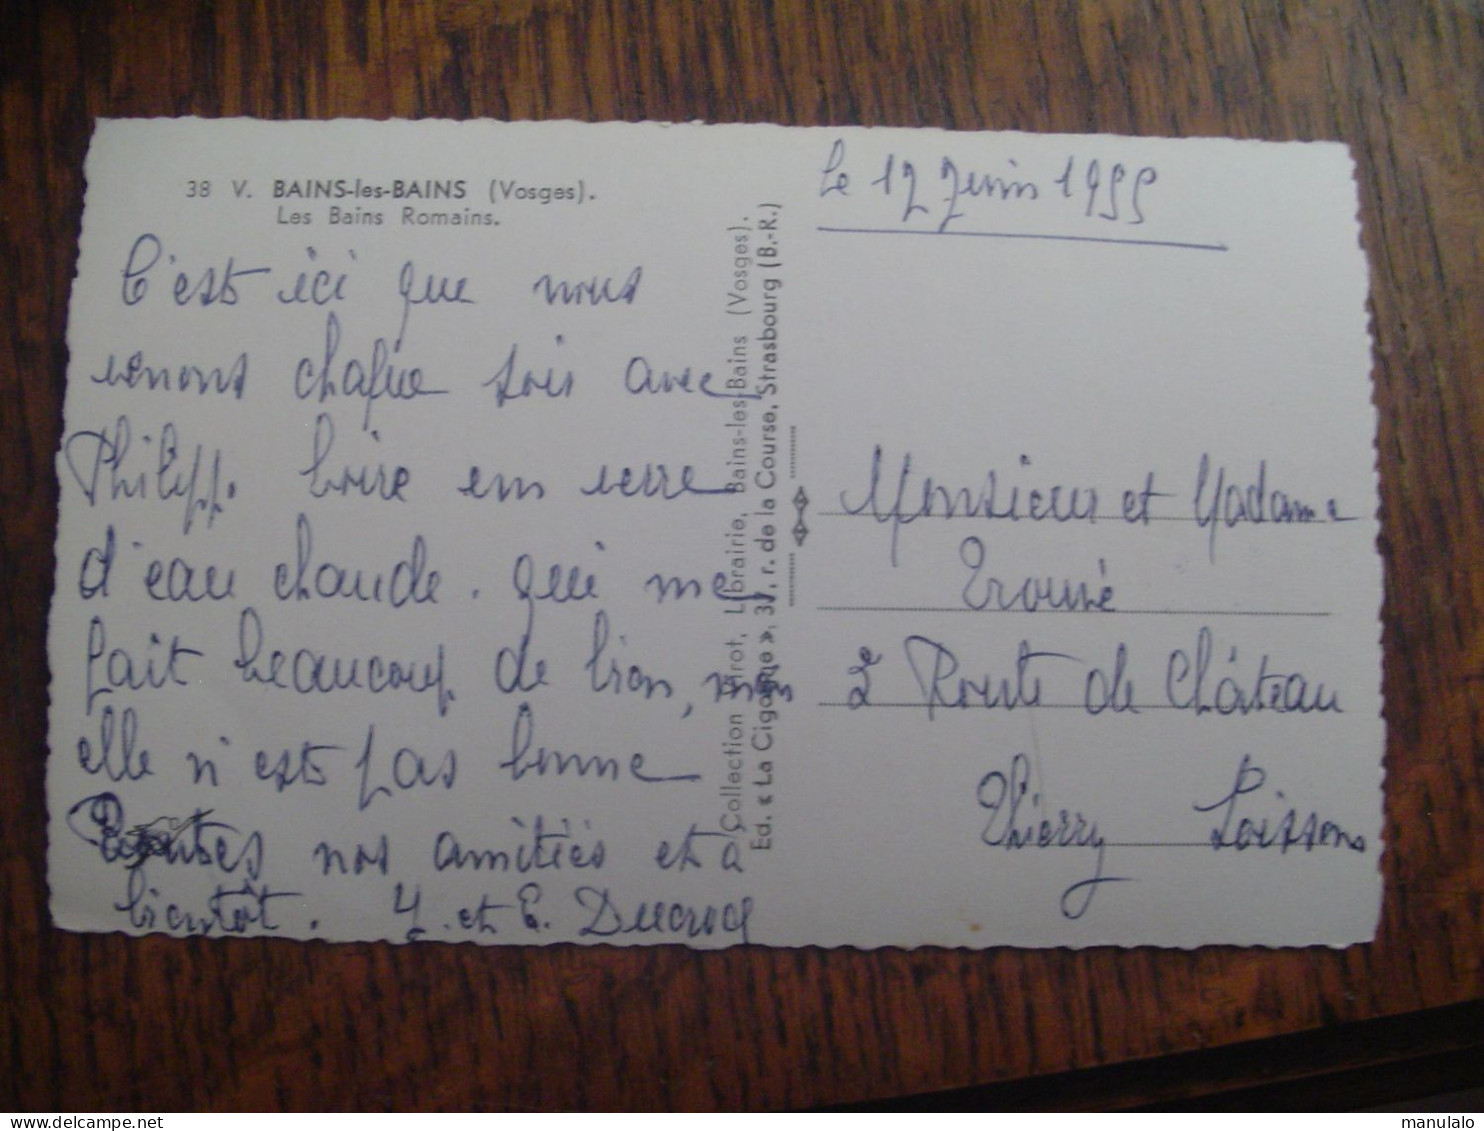 38 V. BAINS-les-BAINS (Vosges).
Les Bains Romains.
C'est ici que nous
venons chaque soir avec
Philipp. boire un verre
d'eau chaude. qui me
fait beaucoup de bien, mais
elle n'est pas bonne
Toutes nos amitiés et à
bientôt. Y. et E. Ducrocq
Collection Librairie, Bains-les-Bains (Vosges).
Ed. « La Cigogne », 37, r. de la Course, Strasbourg (B.-R.)
le 12 Juin 1955
Monsieur et Madame
2 Route de Château
Thierry Soissons
www.delcampe.net
manulalo